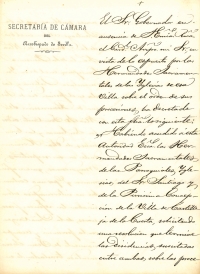 SECRETARÍA DE CÁMARA
DEL
Arzobispado de Sevilla.
El Sr. Gobernador en
ausencia de
el Arzpo. mi Sr. en
vista de lo expuesto por las
Hermandades Sacramen-
tales de las Yglesias de esa
Villa sobre el orden de sus
procesiones, ha decretado
con esta fecha lo siguiente:
Habiendo acudido á esta
Autoridad las Her-
mandades Sacramentales
de las Parroquiales Ygle-
sias, del Sr. Santiago y
de la Purisima Concep-
cion de la Villa de Castille-
ja de la Cuesta, solicitando
una resolucion que termine
las disidencias, suscitadas
entre ambas, sobre las proce